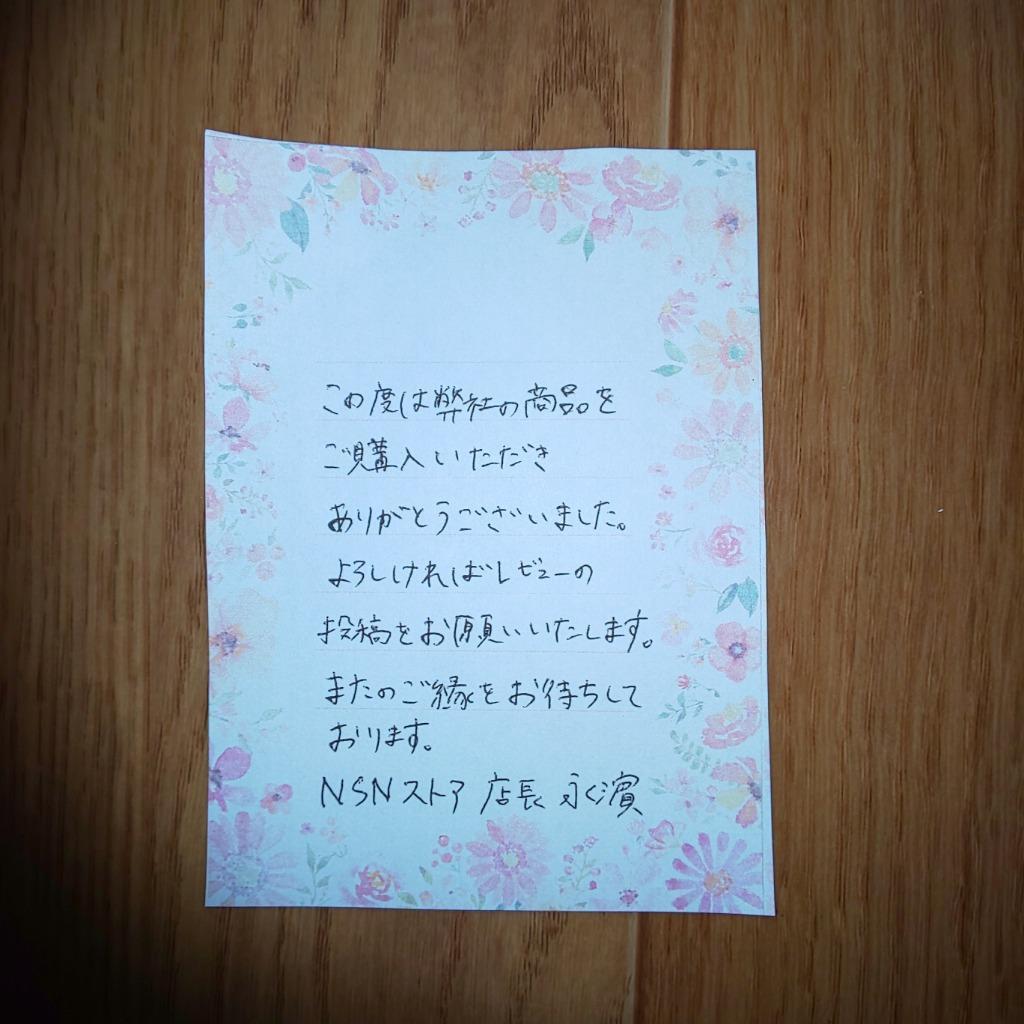 この度は弊社の商品を
ご購入いただき
ありがとうございました。
よろしければレビューの
投稿をお願いいたします。
またのご縁をお待ちして
おります。
NSNストア 店長 永濱